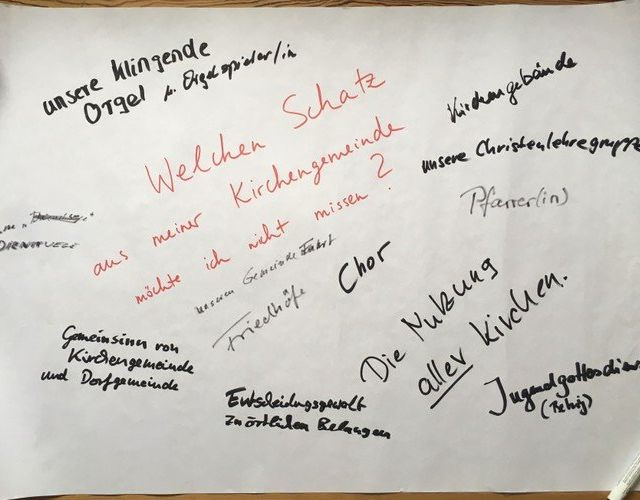 unsere klingende
Orgel
Orgelspieler/in
Welchen Schatz
aus meiner Kirchengemeinde
möchte ich nicht missen?
Kirchengebäude
unsere Christenlehregruppe
Pfarrer(in)
unseren Gemeinde
Friedhöfe
Chor
Die Nutzung
aller Kirchen.
Gemeinsinn von
Kirchengemeinde
und Dorfgemeinde
Entscheidungsgewalt
zu örtlichen Belangen
Jugendgottesdien